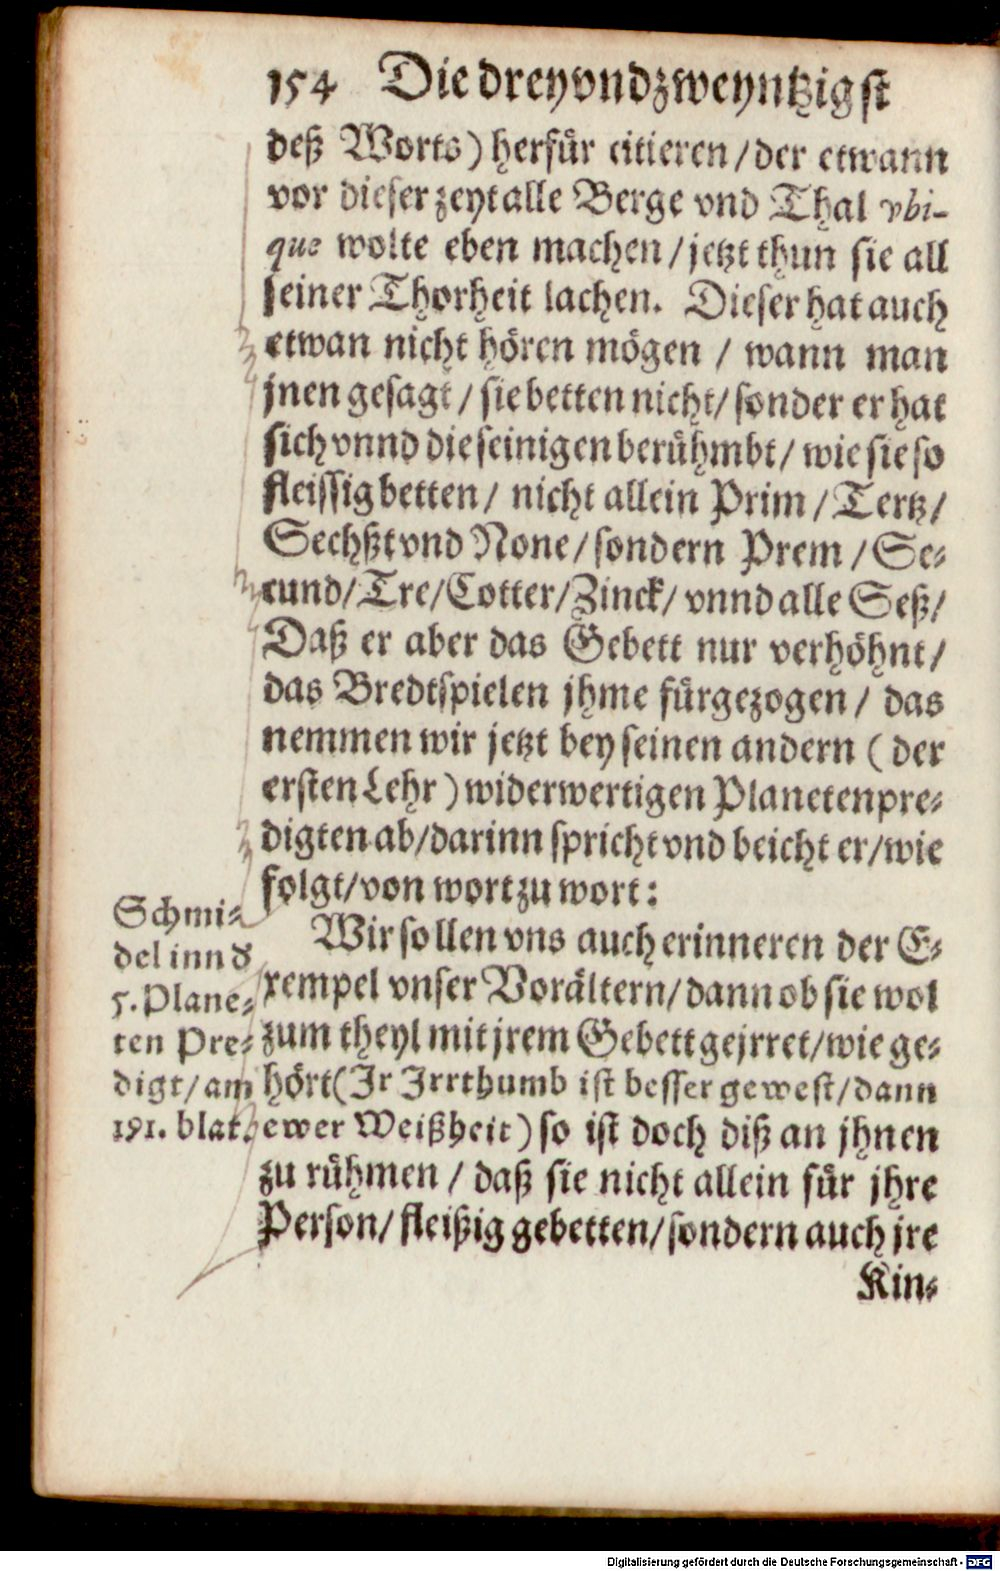 154 Die drey vnd zweyntzigst
deß Worts) herfür citieren / der etwann
vor dieser zeyt alle Berge vnd Thal vbi-
que wolte eben machen / jetzt thun sie all
seiner Thorheit lachen. Dieser hat auch
etwan nicht hören mögen / wann man
jnen gesagt / sie betten nicht / sonder er hat
sich vnnd die seinigen berühmbt / wie sie so
fleissig betten / nicht allein Prim / Tertz /
Sechßt vnd None / sondern Prem / Se-
cund / Tre / Cotter / Zinck / vnnd alle Seß /
Daß er aber das Gebett nur verhöhnt /
das Bredtspielen jhme fürgezogen / das
nemmen wir jetzt bey seinen andern ( der
ersten Lehr ) widerwertigen Planetenpre-
digten ab / darinn spricht vnd beicht er / wie
folgt / von wort zu wort :
Schmi-
del inn d
5. Plane-
ten Pre-
digt / am
191. blat.
Wir sollen vns auch erinneren der E-
xempel vnser Vorältern / dann ob sie wol
zum theyl mit jrem Gebett gejrret / wie ge-
hört (Ir Irrthumb ist besser gewest / dann
ewer Weißheit) so ist doch diß an jhnen
zu rühmen / daß sie nicht allein für jhre
Person / fleißig gebetten / sondern auch jre
Kin-
Digitalisierung gefördert durch die Deutsche Forschungsgemeinschaft - DFG